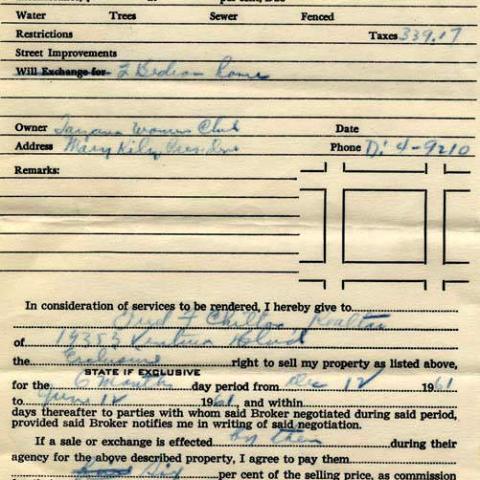 Water Trees Sewer Fenced
Restrictions Taxes 339.17
Street Improvements
Will Exchange for 2 Bedroom home
Owner Tarzana Womens Club Date
Address Mary Kily, President Phone Di 4-9210
Remarks:
In consideration of services to be rendered, I hereby give to
Fred F Chilton, Realtor
of 19353 Ventura Blvd
the Exclusive right to sell my property as listed above,
STATE IF EXCLUSIVE
for the 6 Months day period from Dec 12 1961
to June 12 1961, and within
days thereafter to parties with whom said Broker negotiated during said period,
provided said Broker notifies me in writing of said negotiation.
If a sale or exchange is effected by them during their
agency for the above described property, I agree to pay them
Six per cent of the selling price, as commission